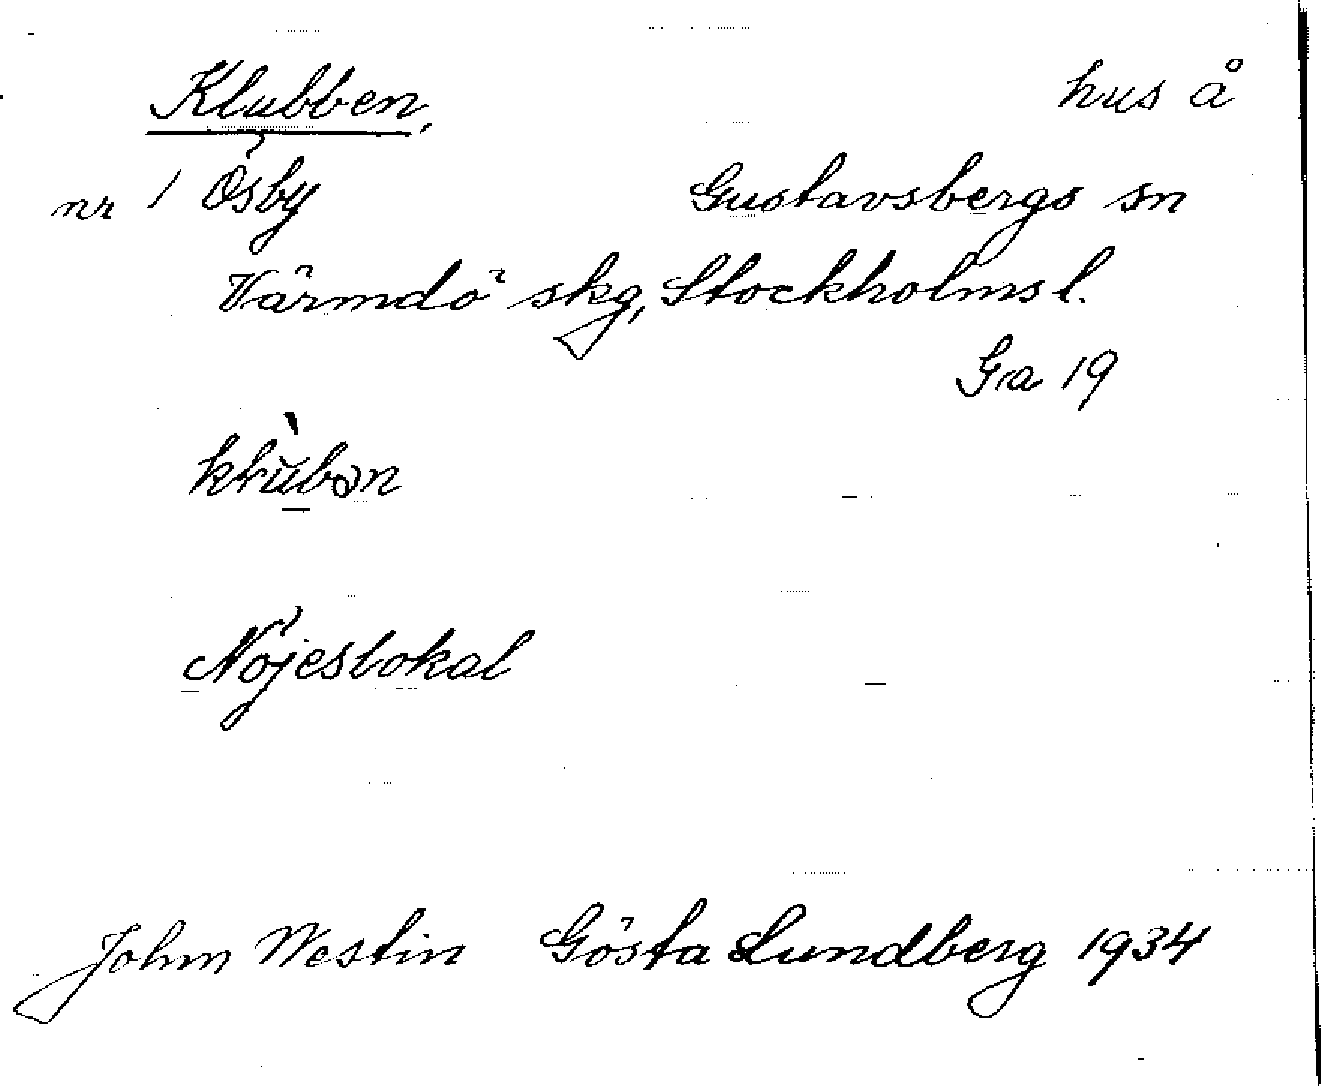 Klubben, hus å
nr 1 Ösby Gustavsbergs sn
Värmdö skg, Stockholms l.
Ga 19
Nöjeslokal
John Westin Gösta Lundberg 1934